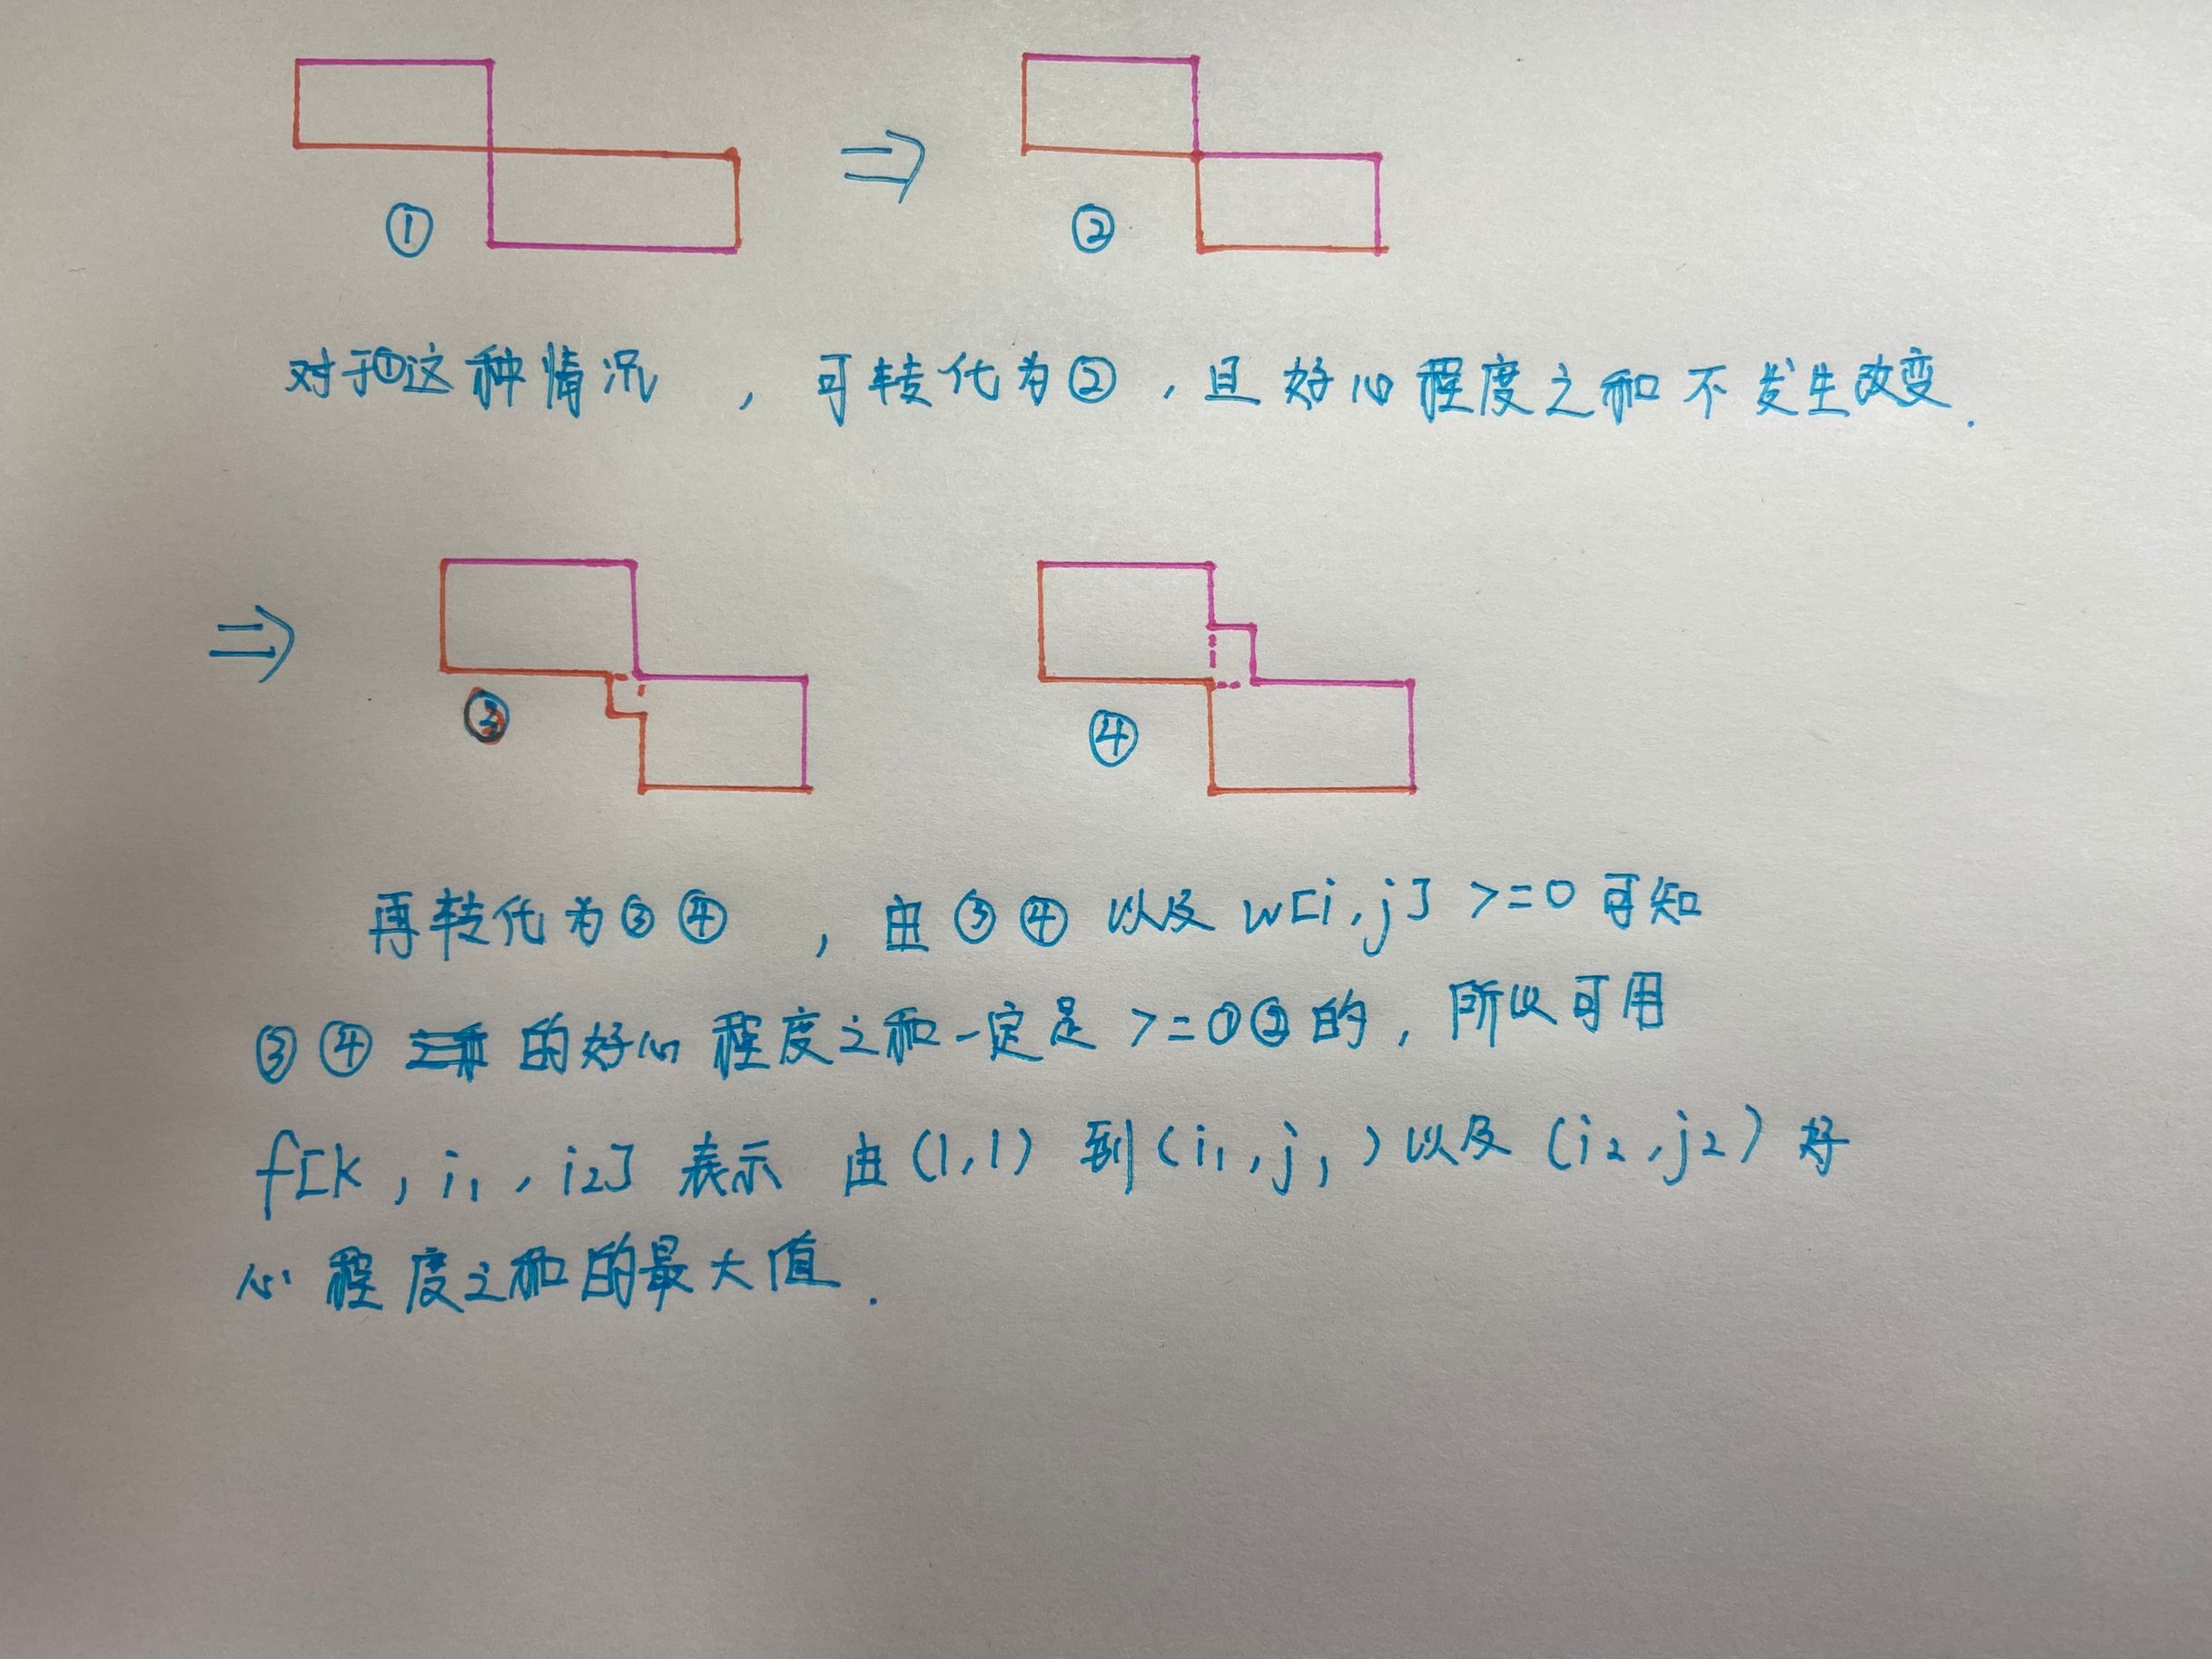 ① ②
对于①这种情况,可转化为②,且好心程度之和不发生改变.
③ ④
再转化为③④,由③④以及w[i,j]>=0可知
③④的好心程度之和一定是>=①②的,所以可用
f[k,i₁,i₂]表示由(1,1)到(i₁,j₁)以及(i₂,j₂)好
心程度之和的最大值.